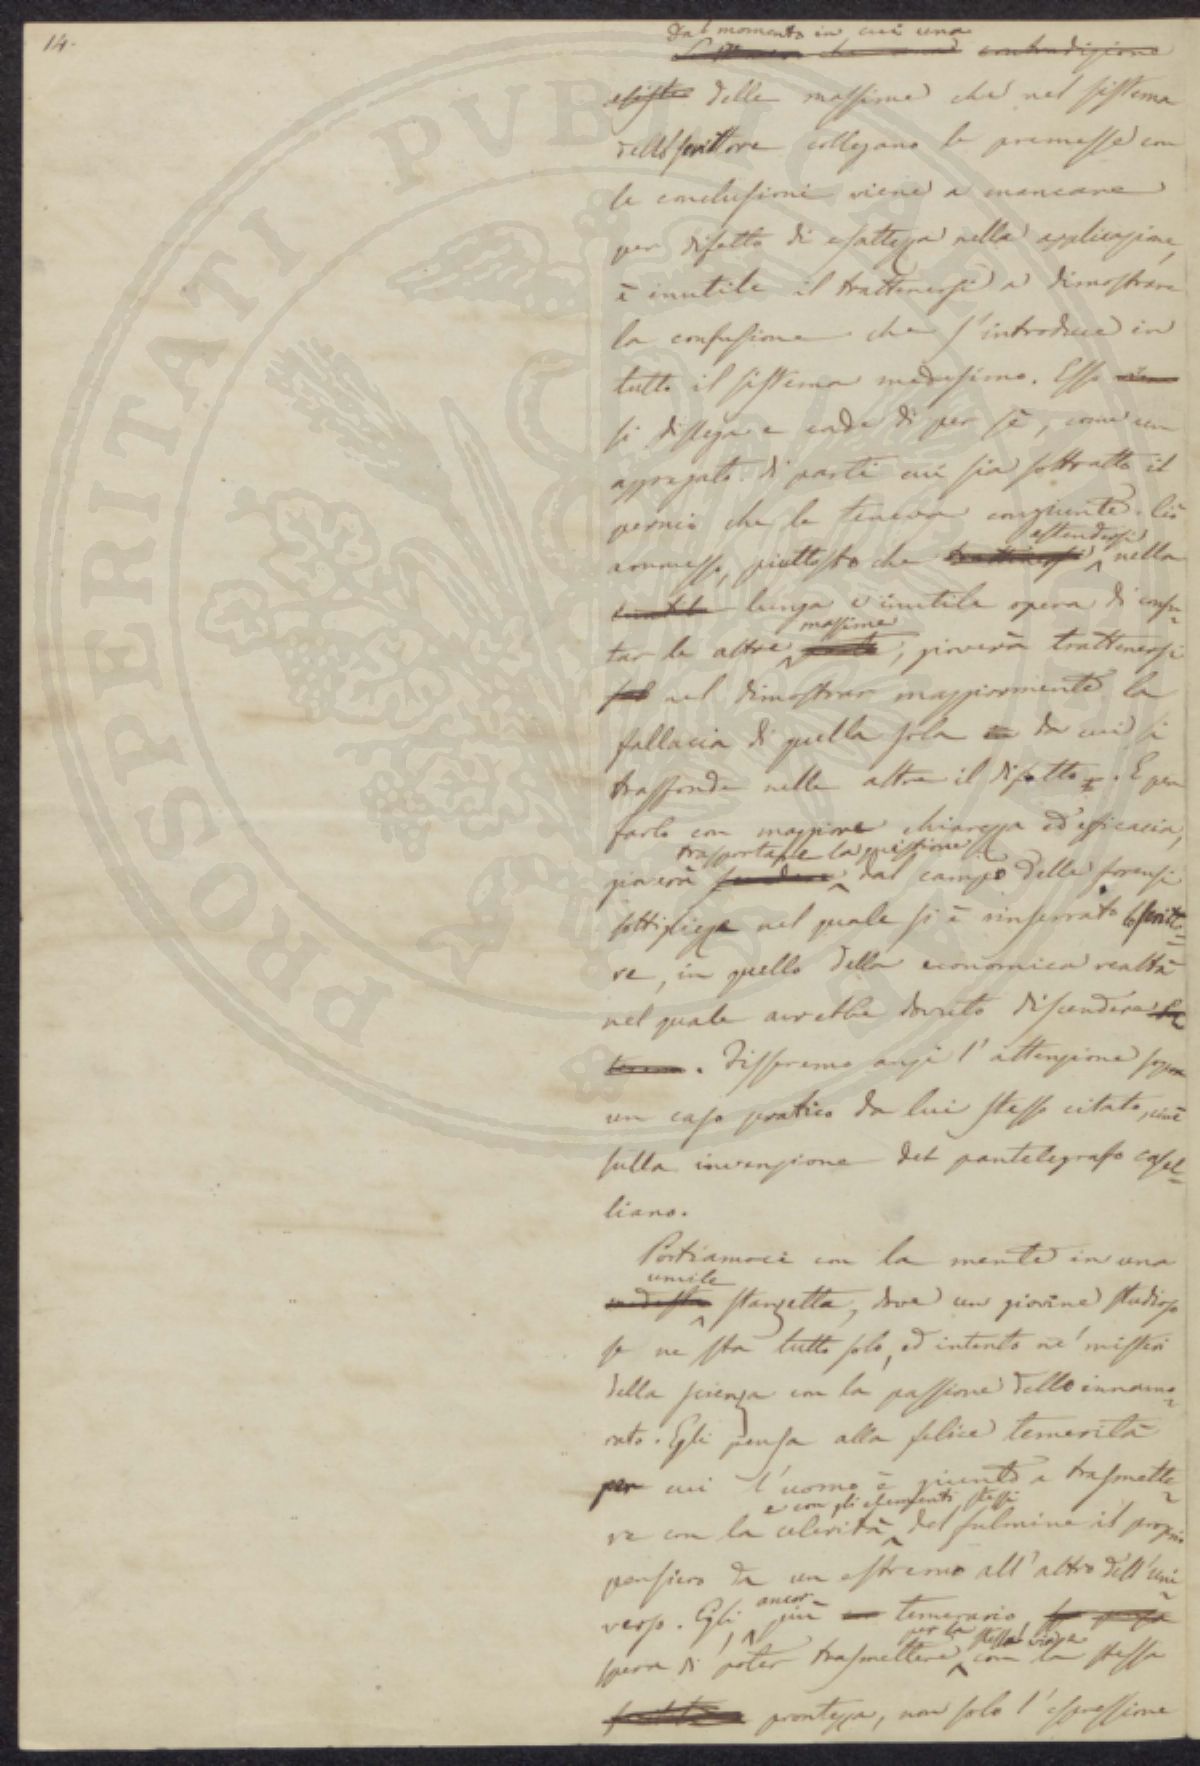 14.
Dal momento in cui una
contradizione
esiste delle massime che nel sistema
dello scrittore collegano le premesse con
le conclusioni viene a mancare
per difetto di esattezza nella applicazione,
è inutile il trattenersi a dimostrare
la confusione che s'introduce in
tutto il sistema medesimo. Esso
si dislega e cade di per sè, come un
aggregato di parti cui sia sottratto il
pernio che le teneva congiunte. Ciò
estendersi
ammesso, piuttosto che trattenersi nella
lunga e inutile opera di confu-
massime
tar le altre, gioverà trattenersi
sol nel dimostrar maggiormente la
fallacia di quella sola da cui si
trasfonde nelle altre il difetto. E per
farlo con maggiore chiarezza ed efficacia,
trasportare la quistione
gioverà scendere dal campo delle forensi
sottigliezze nel quale si è rinserrato lo scritto-
re, in quello della economica realtà
nel quale avrebbe dovuto discendere
. Fisseremo anzi l'attenzione sopra
un caso pratico da lui stesso citato, cioè
sulla invenzione del pantelegrafo casel-
liano.
Portiamoci con la mente in una
umile
modesta stanzetta, dove un giovine studioso
se ne sta tutto solo, ed intento ne' misteri
della scienza con la passione dello innamo-
rato. Egli pensa alla felice temerità
per cui l'uomo è giunto a trasmette-
e con gli elementi stessi
re con la celerità del fulmine il proprio
pensiero da un estremo all'altro dell'uni-
ancor
verso. Egli, più temerario,
per la stessa via e
spera di poter trasmettere con la stessa
prontezza, non solo l'espressione
PROSPERITATI PVBLICAE